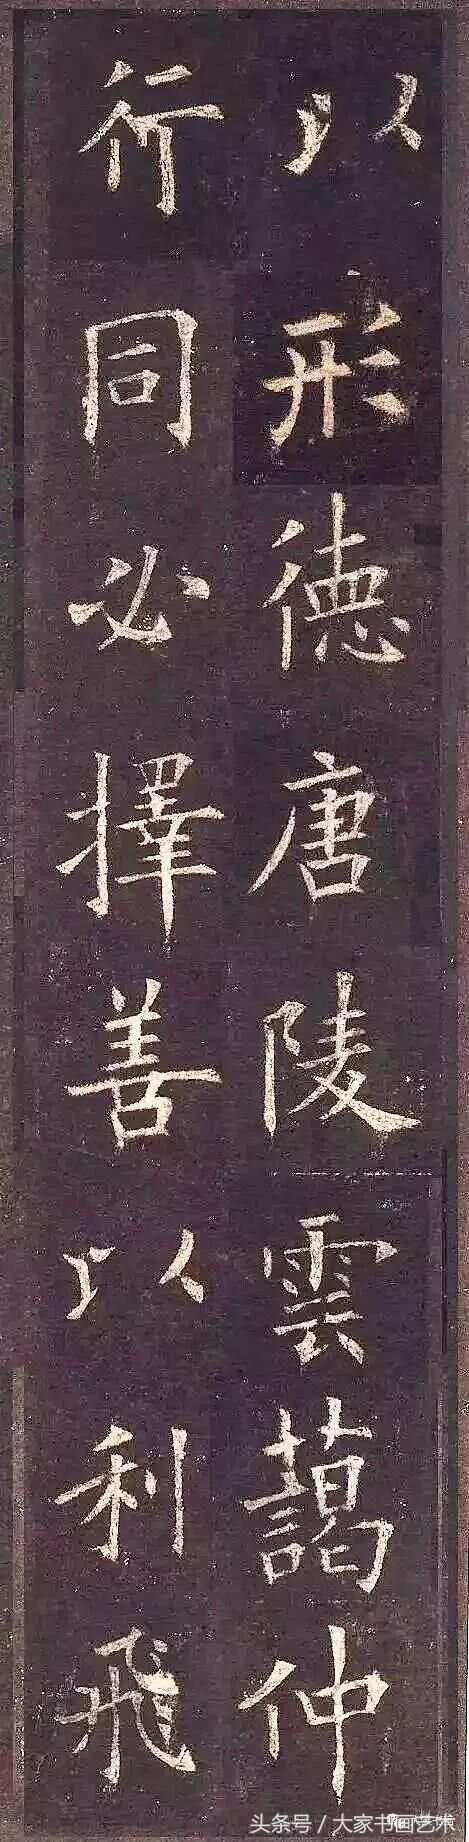 以形德唐陵雲藹仲
行同必擇善以利飛
头条号／大家书画艺术